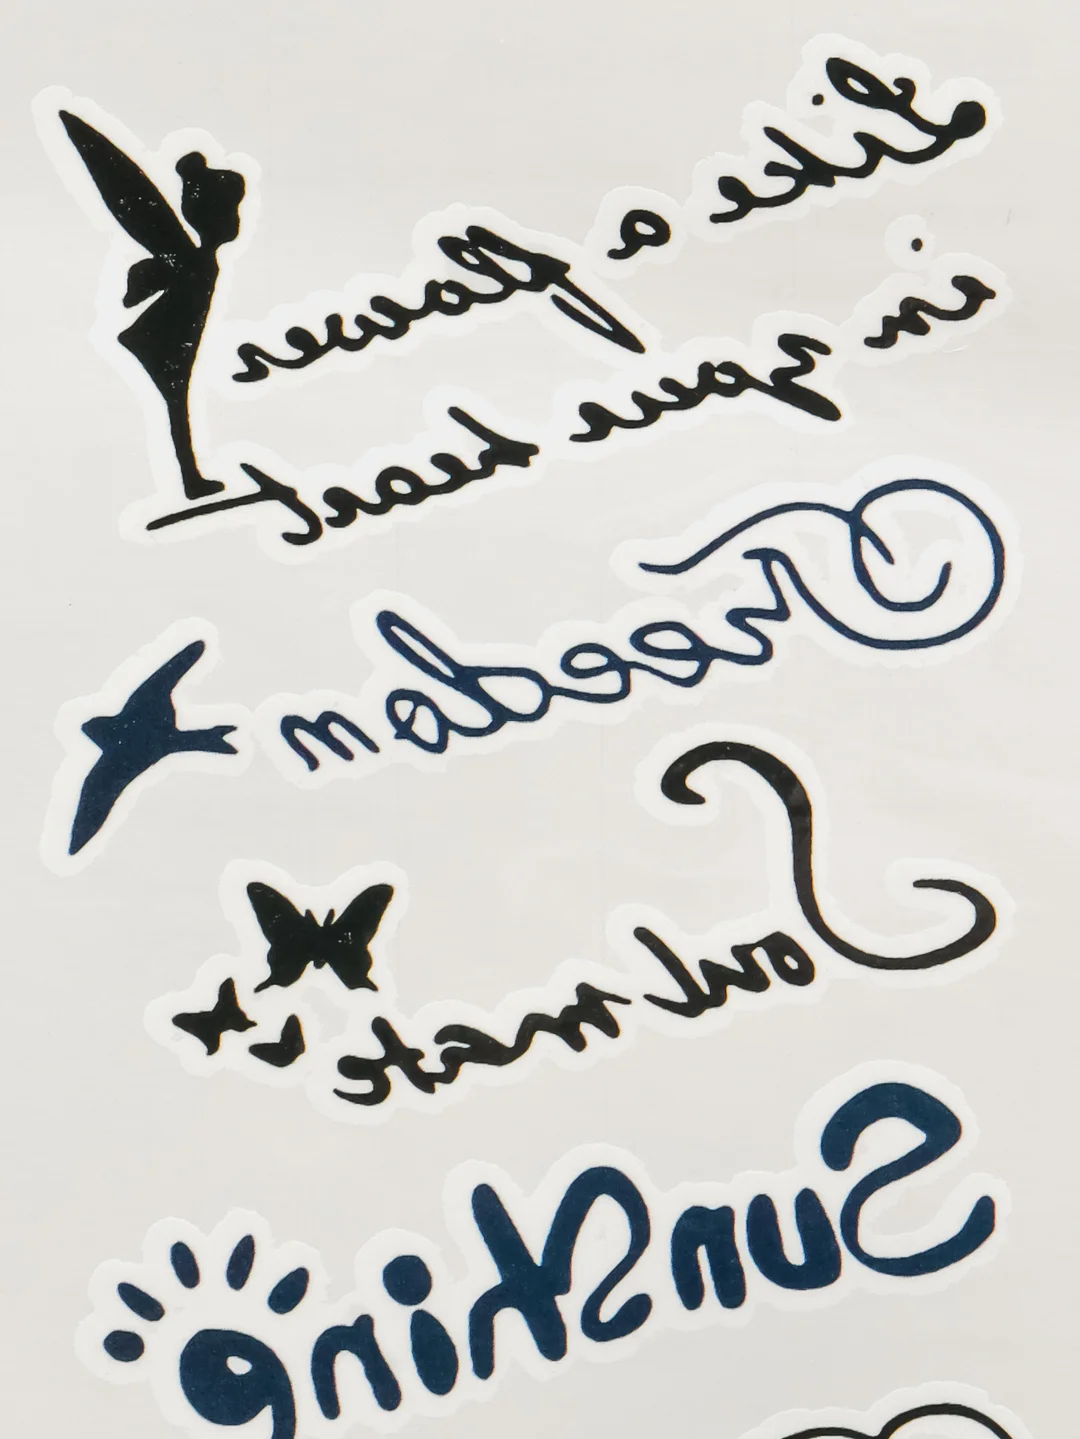 Like a flower
in your heart
Freedom
Soul mate
SunShing